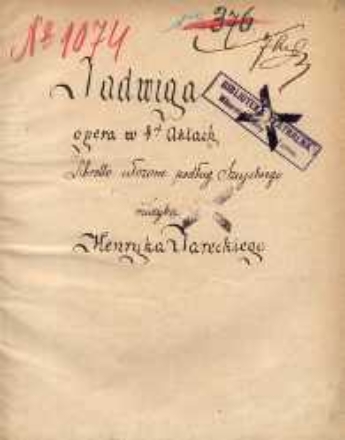 № 1074
376
Jadwiga
opera w 4ch Aktach
libretto ułożone podług Szujskiego
muzyka
Henryka Jareckiego
BIBLIOTEKA TEATRALNA